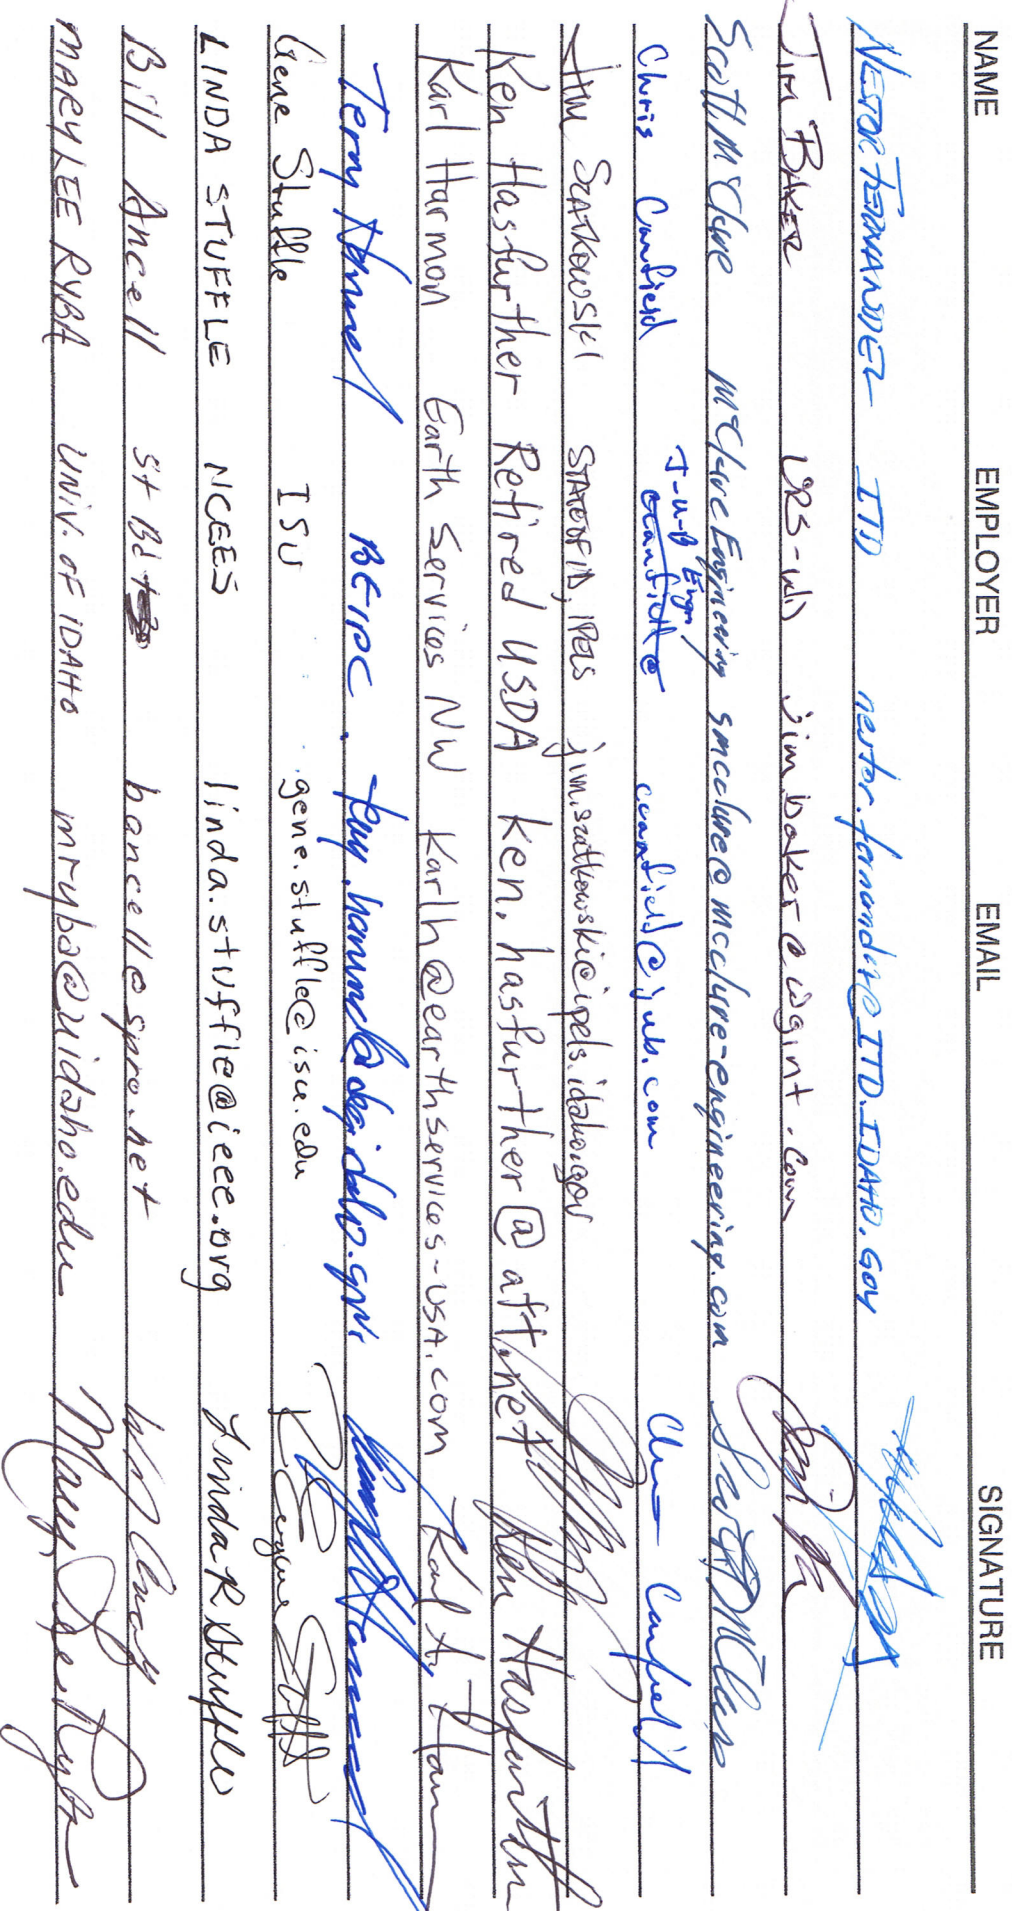 NAME EMPLOYER EMAIL SIGNATURE
NESTOR FERNANDEZ ITD nestor.fernandez@ITD.IDAHO.GOV
JIM BAKER URS-WD jim.baker@wgint.com
Scott McClure McClure Engineering smcclure@mcclure-engineering.com
Chris Canfield J-U-B Engr ccanfield@ ccanfield@jub.com Chris Canfield
JIM SZATKOWSKI STATE OF ID, IPELS jim.szatkowski@ipels.idaho.gov
Ken Hasfurther Retired USDA ken.hasfurther@att.net Ken Hasfurther
Karl Harmon Earth Services NW Karlh@earthservices-USA.com Karl A. Harm
Terry BEIPC
Gene Stuffle ISU gene.stuffle@isu.edu
LINDA STUFFLE NCEES linda.stuffle@ieee.org Linda R Stuffle
Bill Ancell St Bd bancell@spro.net
MARY LEE RYBA UNIV. OF IDAHO mryba@uidaho.edu Mary Lee Ryba